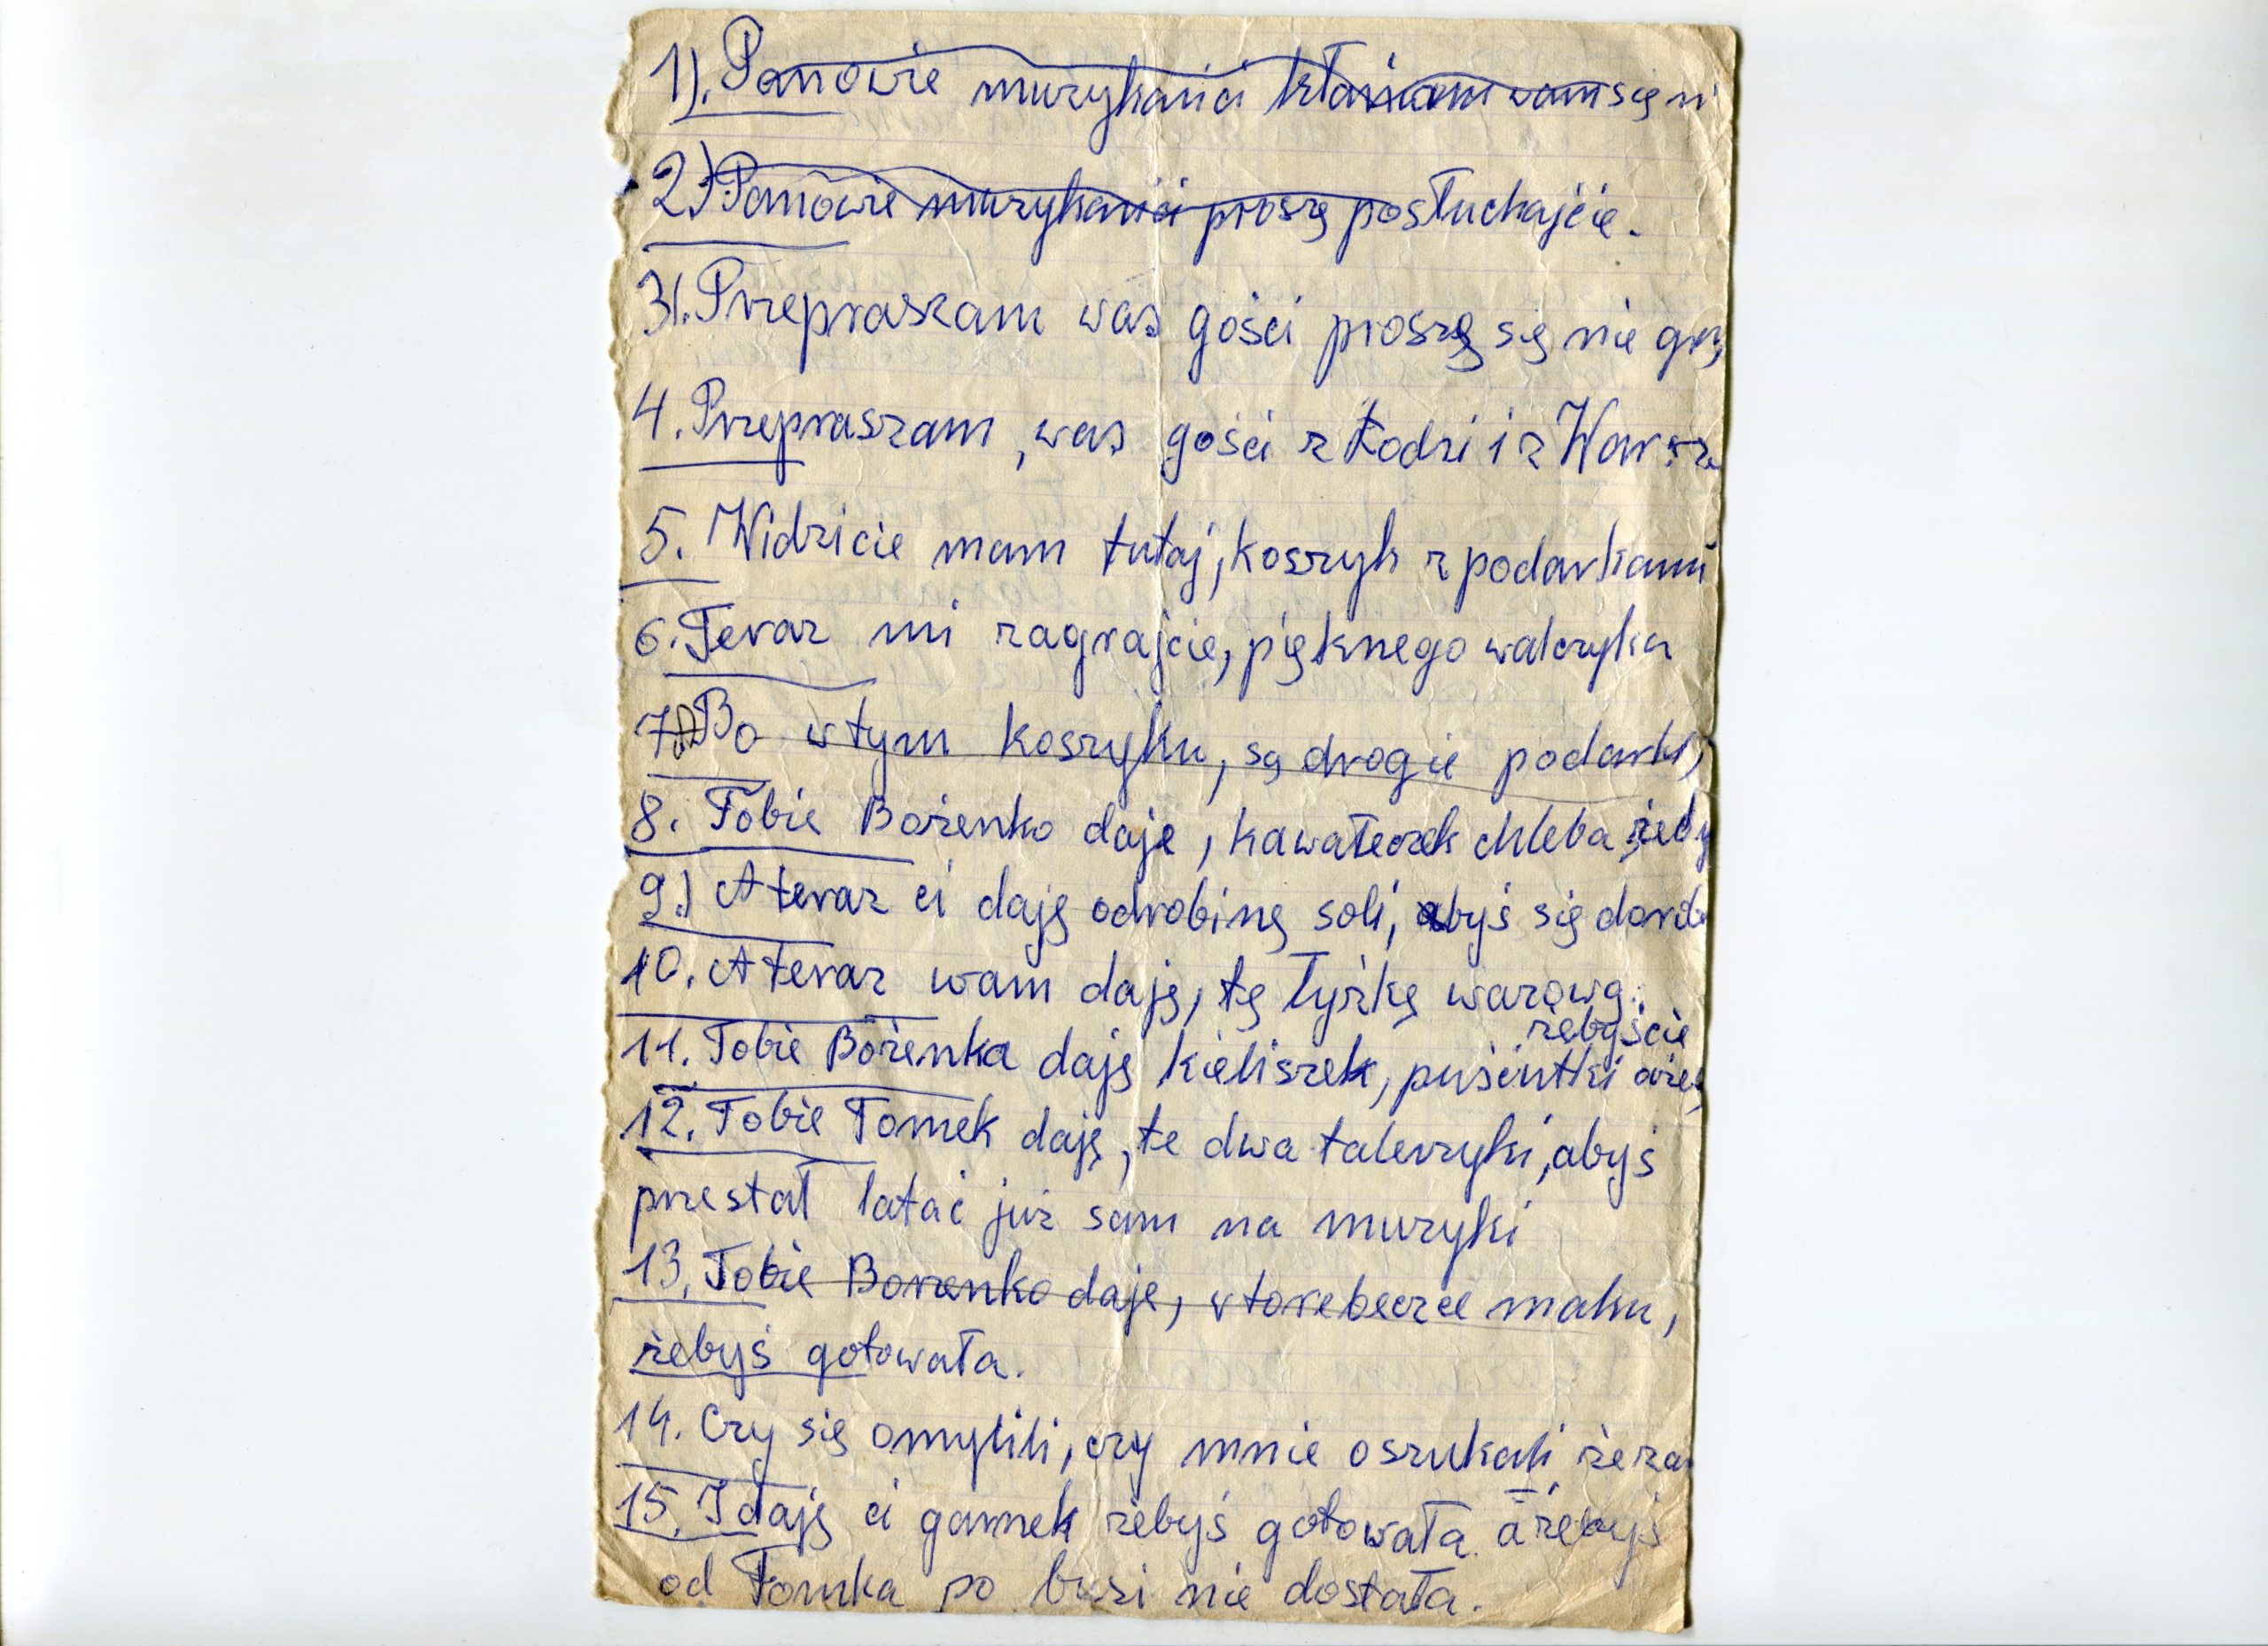 1). Panowie muzykańci kłaniam wam się ni
2.) Panowie muzykańci proszę posłuchajcie.
3). Przepraszam was gości proszę się nie
4. Przepraszam, was gości z Łodzi i z Warsz
5. Widzicie mam tutaj, koszyk z podarkami
6. Teraz mi zagrajcie, pięknego walczyka
7. Bo w tym koszyku, są drogie podarki,
8. Tobie Bożenko daje, kawałeczek chleba żeby
9.) A teraz ci daję odrobinę soli, abyś się dorob
10. A teraz wam daję, tę łyżkę warową.
żebyście
11. Tobie Bożenka daję kieliszek, puściutki
12. Tobie Tomek daję, te dwa talerzyki, abyś
przestał latać już sam na muzyki
13. Tobie Borzenko daje, w torebeczce maku,
żebyś gotowała.
14. Czy się omylili, czy mnie oszukali że za
15. I daję ci garnek żebyś gotowała. a żebyś
od Tomka po buzi nie dostała.